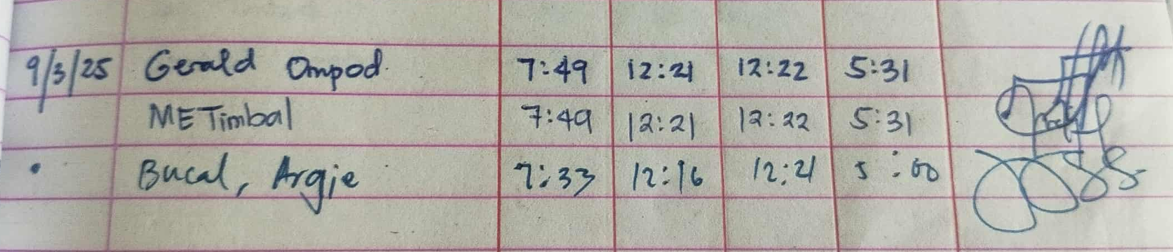 9/3/25 Gerald Ompod 7:49 12:21 12:22 5:31
METimbal 7:49 12:21 12:22 5:31
Bucal, Argie 7:33 12:16 12:21 5:00